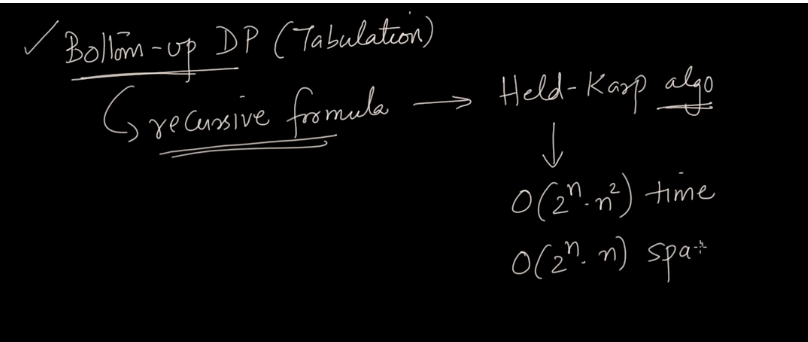 ✓ Bottom-up DP (Tabulation)
↳ recursive formula → Held-Karp algo
↓
O(2ⁿ·n²) time
O(2ⁿ·n) spa